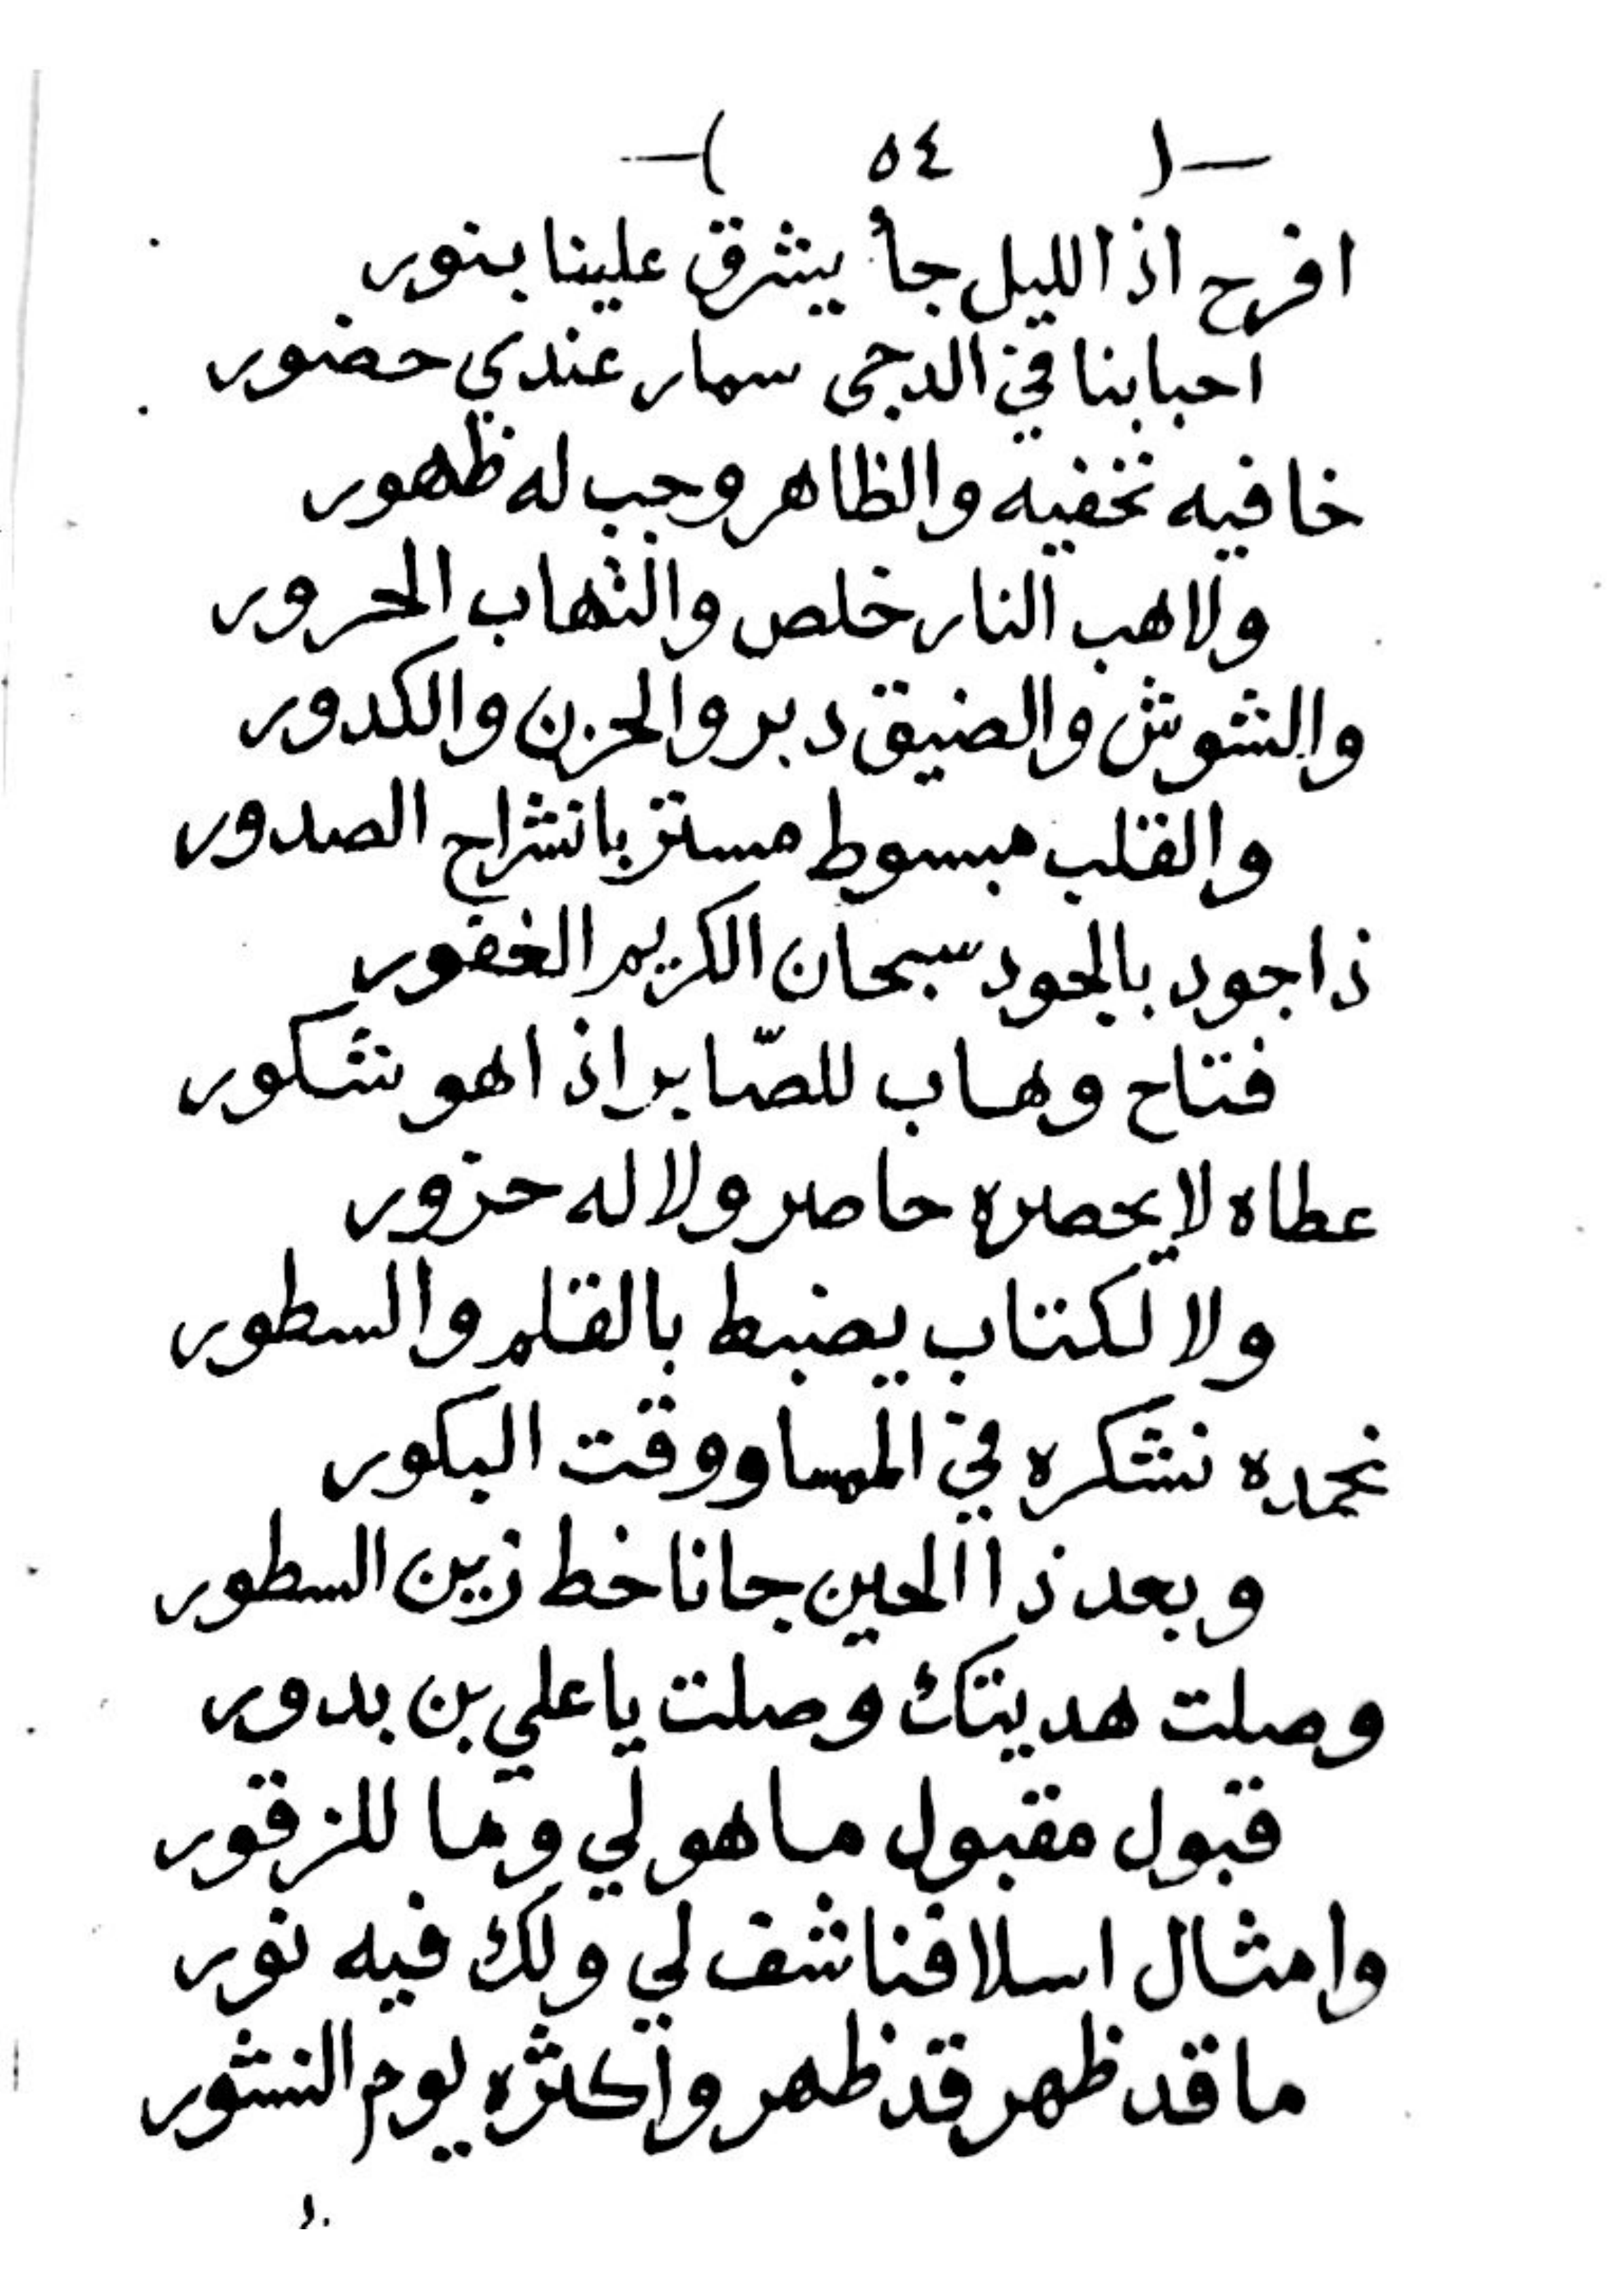 —( ٥٤ )—
افرح اذا الليل جأ يشرق علينا بنور
احبابنا في الدجى سمار عندي حضور
خافيه تخفيه والظاهر وجب له ظهور
ولاهب النار خلص والتهاب الحرور
والشوش والضيق دبر والحزن والكدور
والقلب مبسوط مستر بانشراح الصدور
ذا جود بالجود سبحان الكريم الغفور
فتاح وهاب للصّابر اذا هو شكور
عطاه لا يحصره حاصر ولا له حزور
ولا لكتاب يضبط بالقلم والسطور
نحمده نشكره في المسا ووقت البكور
وبعد ذا الحين جانا خط زين السطور
وصلت هديتك وصلت يا علي بن بدور
قبول مقبول ما هو لي وما للزقور
وامثال اسلافنا شف لي ولك فيه نور
ما قد ظهر قد ظهر واكثره يوم النشور